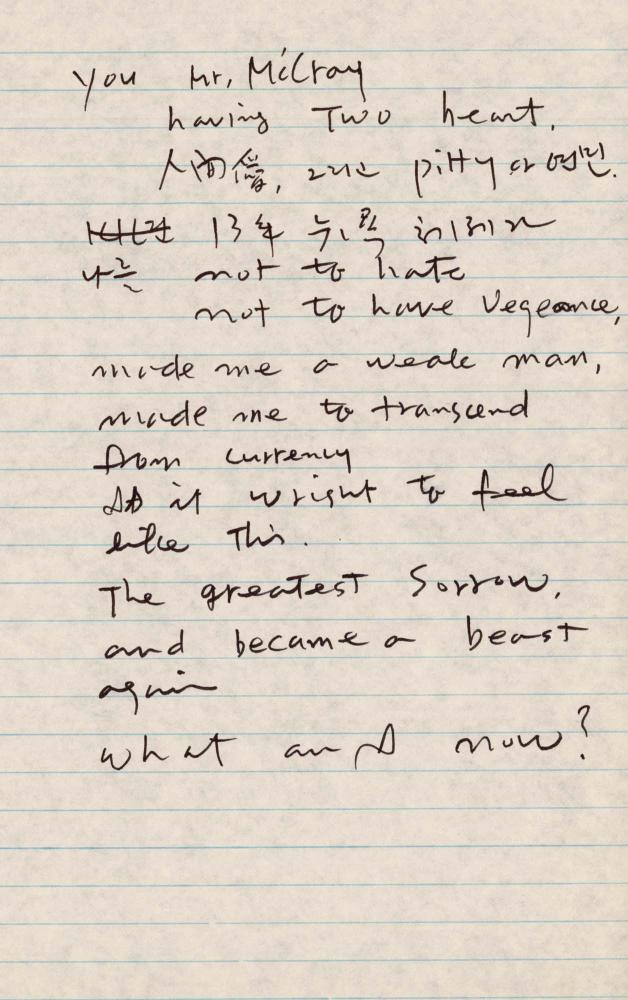 you Mr, McCray
having Two heart,
人間, 그리고 pitty 와 연민.
13年
나는 not to hate
not to have Vegeance,
made me a weak man,
made me to transcend
from currency
it wright to feel
like This.
The greatest Sorrow,
and became a beast
again
what am I now?